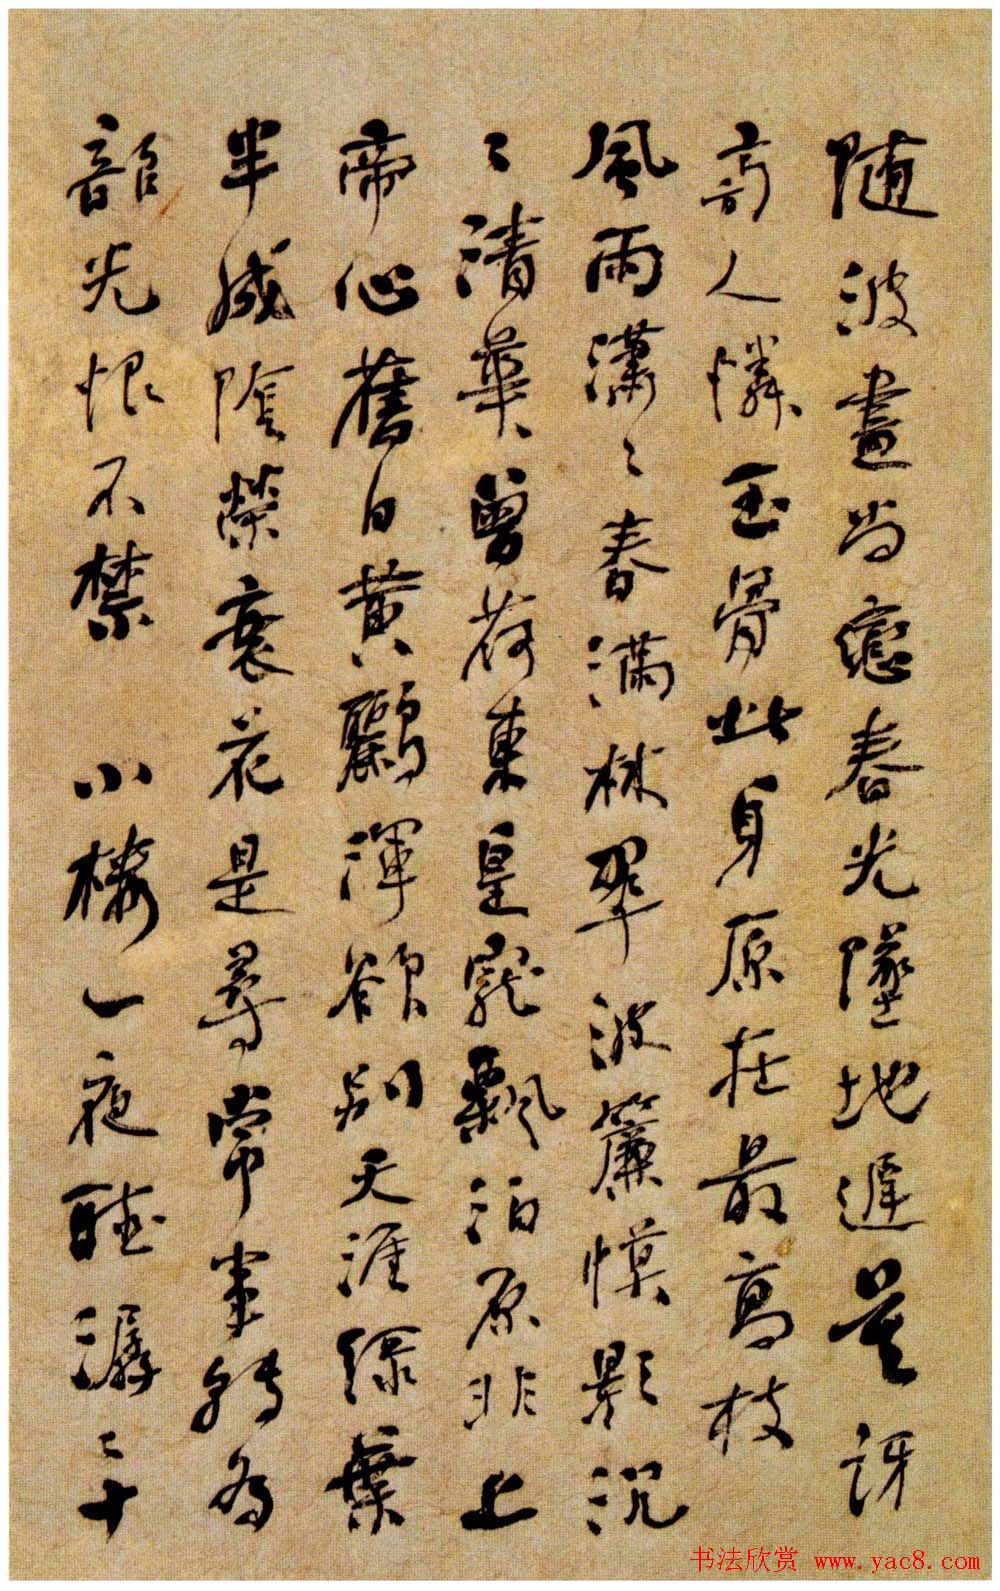 隨波盡尚戀春光墜地遲莫訝
高人憐玉骨此身原在最高枝
風雨瀟〻春滿林翠波簾幙影沉
〻清華曾荷東皇寵飄泊原非上
帝心舊日黃鸝渾欲別天涯綠葉
半成陰榮衰花是尋常事轉為
韶光恨不禁 小樓一夜聽潺〻十
书法欣赏 www.yac8.com